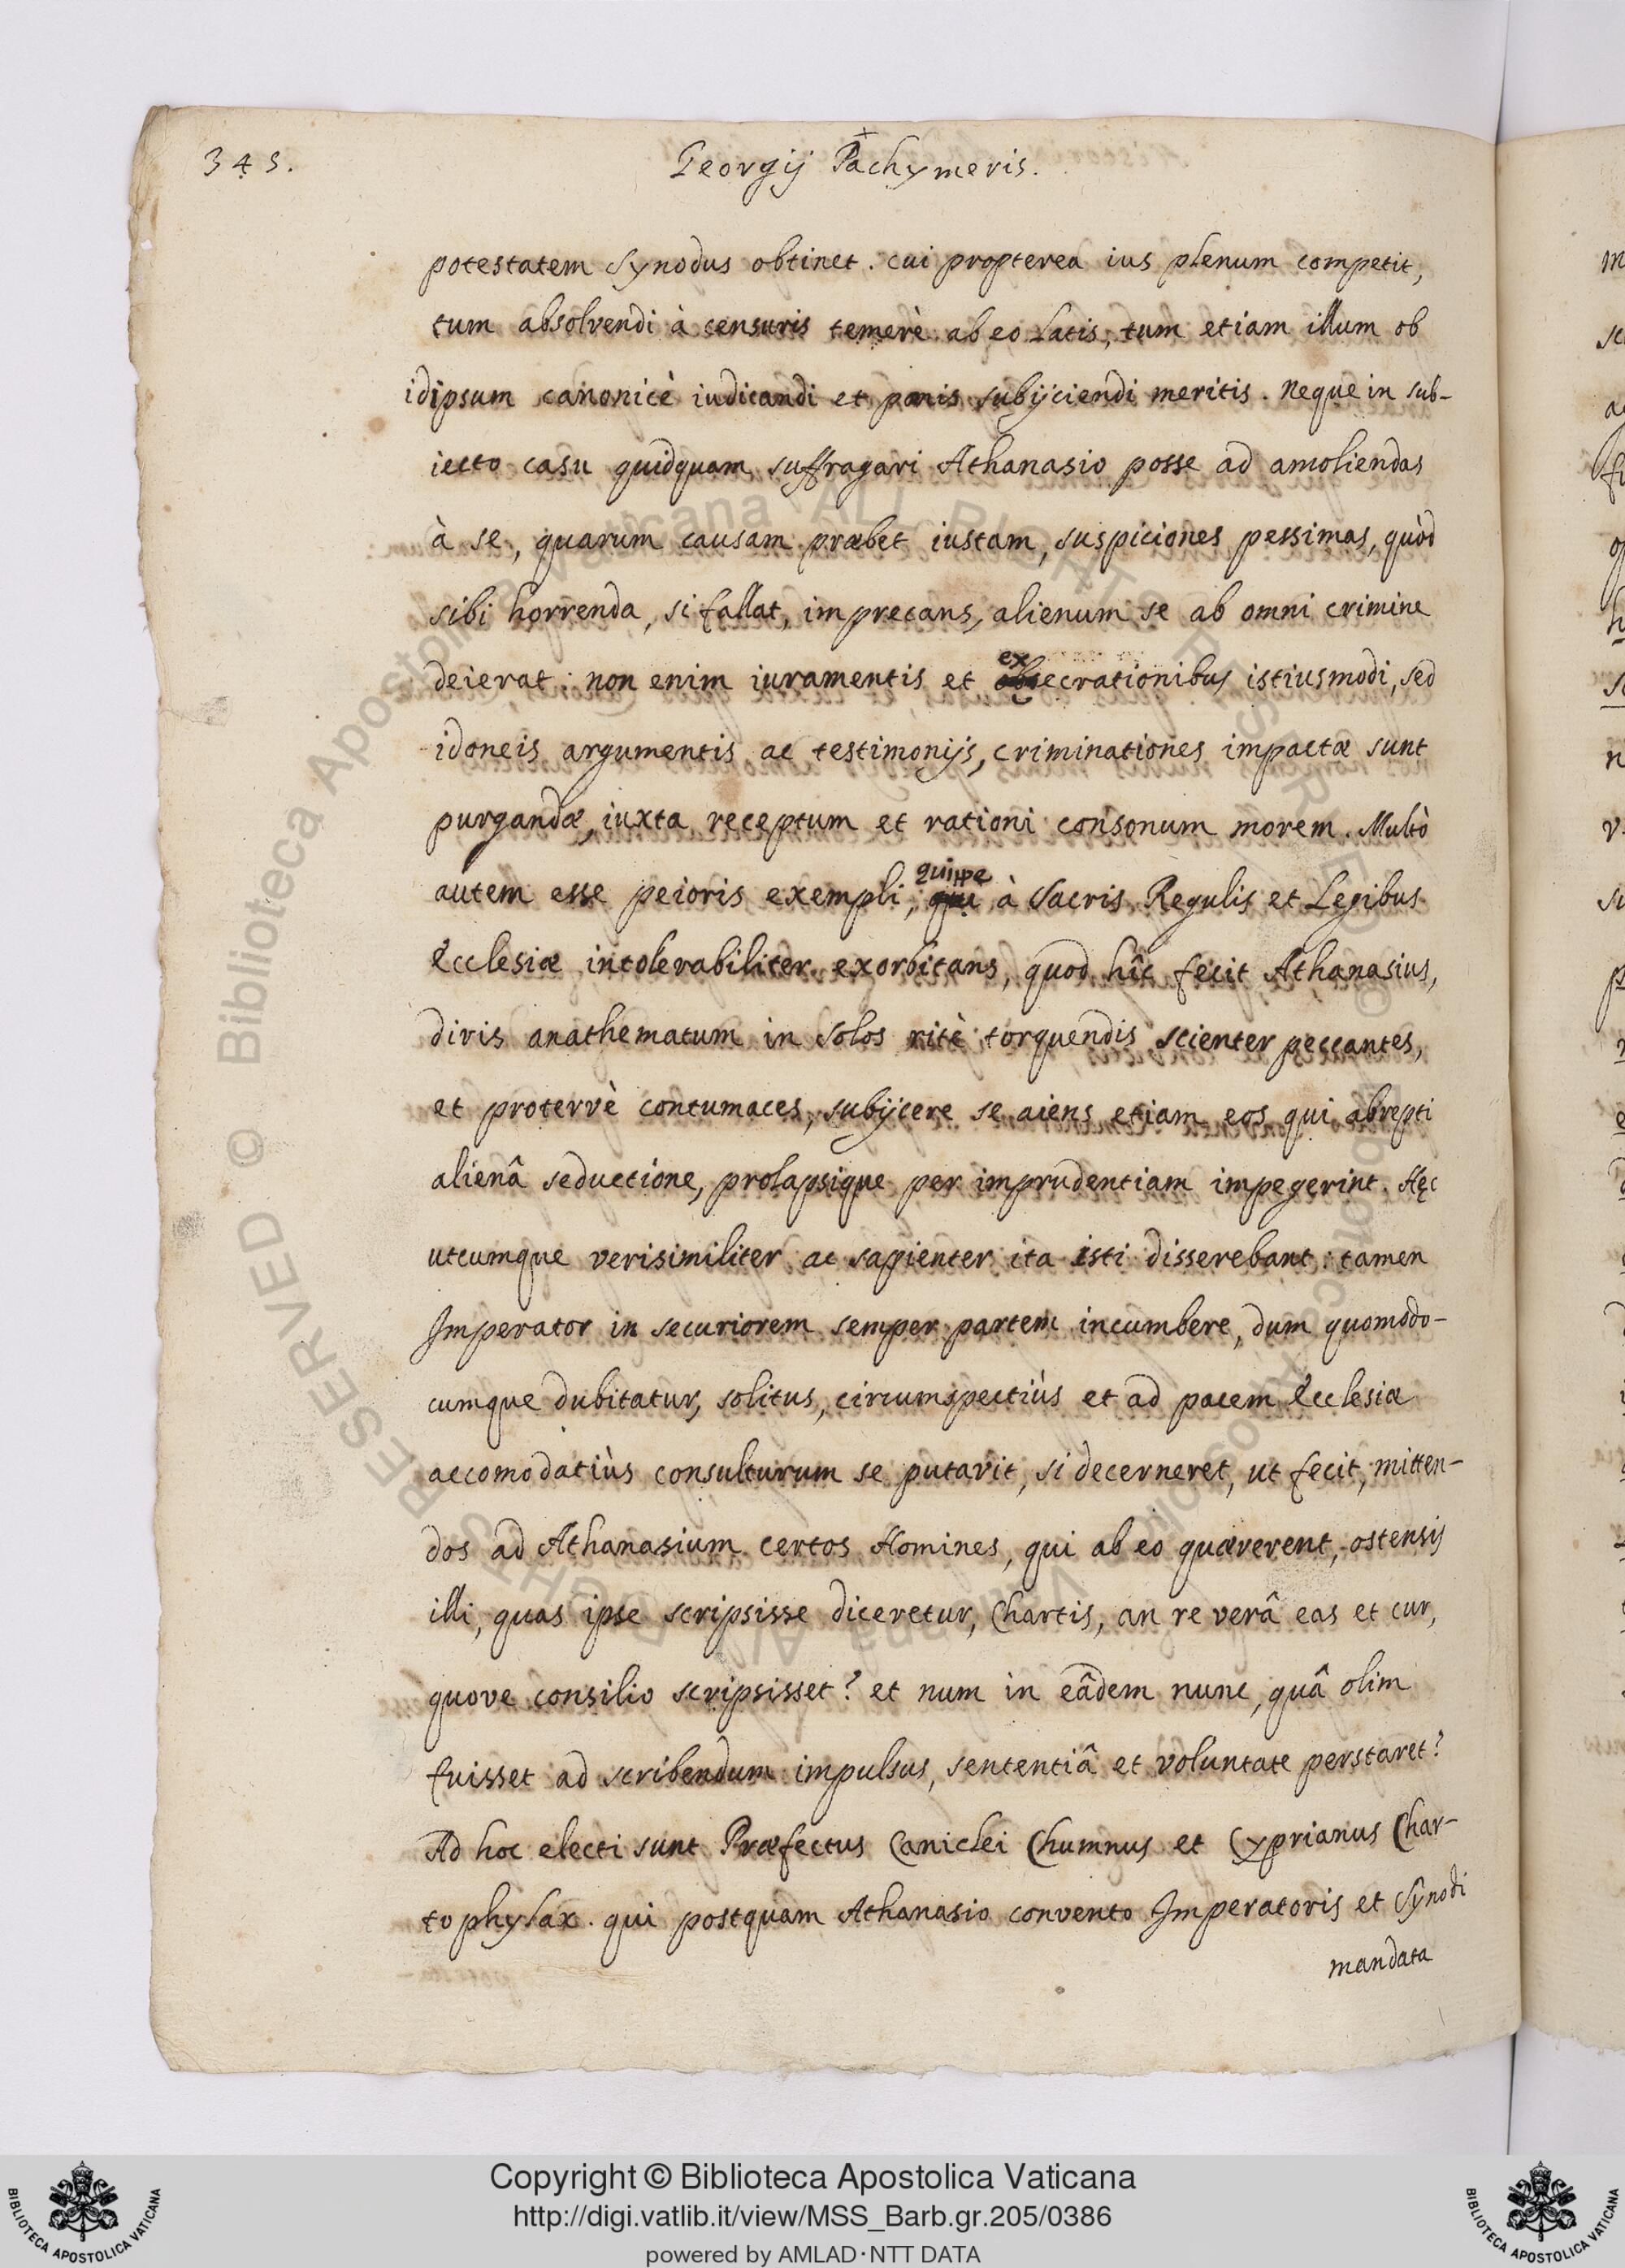 345.
Georgij Pachymeris.
potestatem Synodus obtinet. cui propterea ius plenum competit,
tum absolvendi à censuris temerè ab eo Latis, tum etiam illum ob
idipsum canonicè iudicandi et pœnis subijciendi meritis. Neque in sub-
iecto casu quidquam suffragari Athanasio posse ad amoliendas
à se, quarum causam præbet iustam, suspiciones pessimas, quòd
sibi horrenda, si fallat, imprecans, alienum se ab omni crimine
deierat: non enim iuramentis et exsecrationibus istiusmodi, sed
idoneis argumentis ac testimonijs, criminationes impactæ sunt
purgandæ, iuxta receptum et rationi consonum morem. Multò
autem esse peioris exempli, quippe à Sacris Regulis et Legibus
Ecclesiæ intolerabiliter exorbitans, quod hîc fecit Athanasius,
diris anathematum in solos ritè torquendis scienter peccantes,
et protervè contumaces, subijcere se aiens etiam eos qui abrepti
alienâ seductione, prolapsique per imprudentiam impegerint. Hęc
utcumque verisimiliter ac sapienter ita isti disserebant: tamen
Imperator in securiorem semper partem incumbere, dum quomodo-
cumque dubitatur, solitus, circumspectiùs et ad pacem Ecclesiæ
accomodatiùs consulturum se putavit, si decerneret, ut fecit, mitten-
dos ad Athanasium certos Homines, qui ab eo quærerent, ostensis
illi, quas ipse scripsisse diceretur, Chartis, an re verâ eas et cur,
quove consilio scripsisset? et num in eâdem nunc, quâ olim
fuisset ad scribendum impulsus, sententiâ et voluntate perstaret?
Ad hoc electi sunt Præfectus Caniclei Chumnus et Cyprianus Char-
tophylax. qui postquam Athanasio convento Imperatoris et Synodi
mandata
© Biblioteca Apostolica Vaticana ALL RIGHTS RESERVED
© Biblioteca Apostolica Vaticana ALL RIGHTS RESERVED
Copyright © Biblioteca Apostolica Vaticana
http://digi.vatlib.it/view/MSS_Barb.gr.205/0386
powered by AMLAD·NTT DATA
BIBLIOTECA APOSTOLICA VATICANA
BIBLIOTECA APOSTOLICA VATICANA